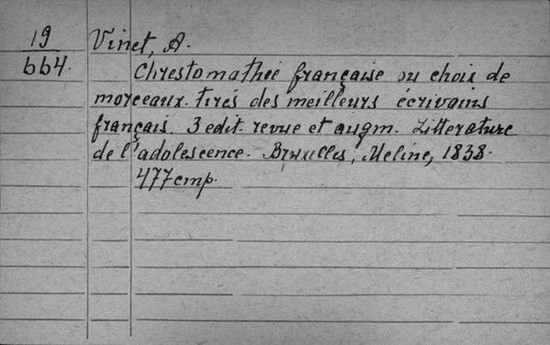 19
664.
Vinet, A.
Chrestomathie française ou choix de
morceaux tirés des meilleurs écrivains
français. 3 edit. revue et augm. Litterature
de l'adolescence. Bruxelles, Meline, 1838.
477 cmp.